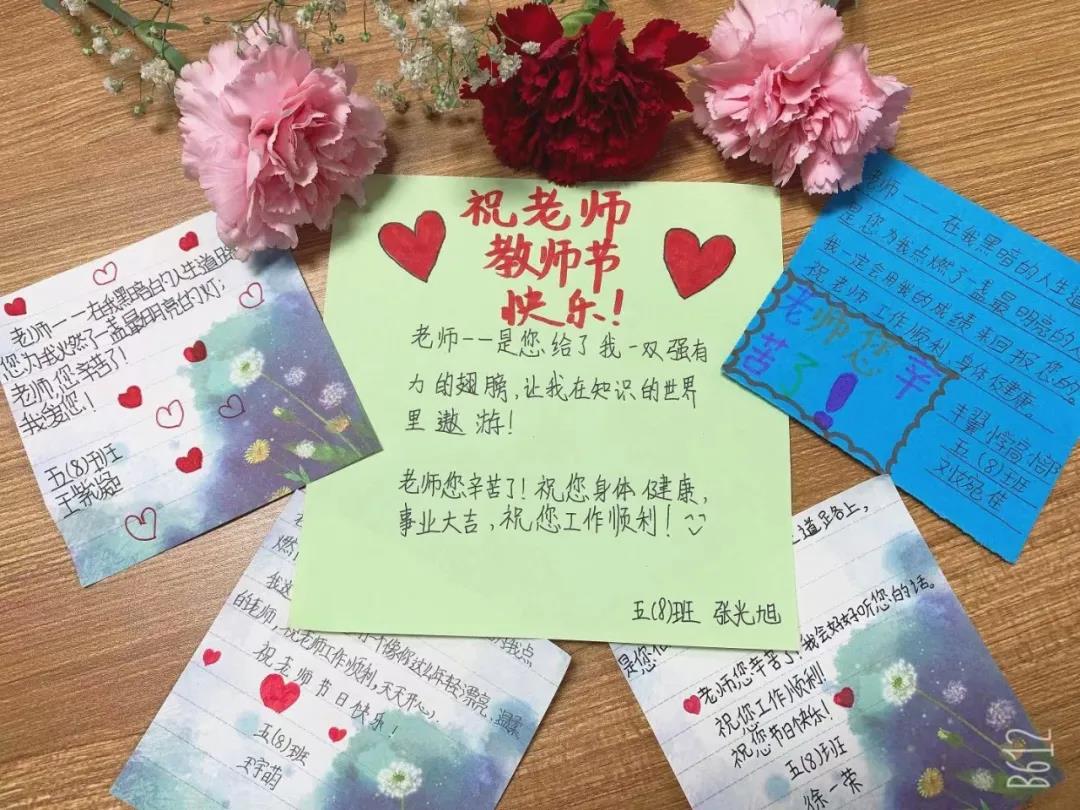 祝老师
教师节
快乐!
老师——是您给了我一双强有
力的翅膀,让我在知识的世界
里遨游!
老师您辛苦了!祝您身体健康,
事业大吉,祝您工作顺利!
五(8)班 张光旭
老师——在我黑暗的人生道路
您为我火燃了一盏最明亮的灯;
老师,您辛苦了!
我爱您!
五(8)班
王紫凝
老师——在我黑暗的人生道
是您为我点燃了一盏最明亮的
我一定会用我的成绩来回报您的
祝老师工作顺利,身体健康。
老师您辛
苦了!
五(8)班
燃
我这
的老师,祝老师工作顺利,天天开心,
像你这么年轻漂亮,温柔
祝老师节日快乐!
五(8)班
王宇萌
道路上,
是您
老师您辛苦了!我会好好听您的话。
祝您工作顺利!
祝您节日快乐!
五(8)班
徐一荣
B612